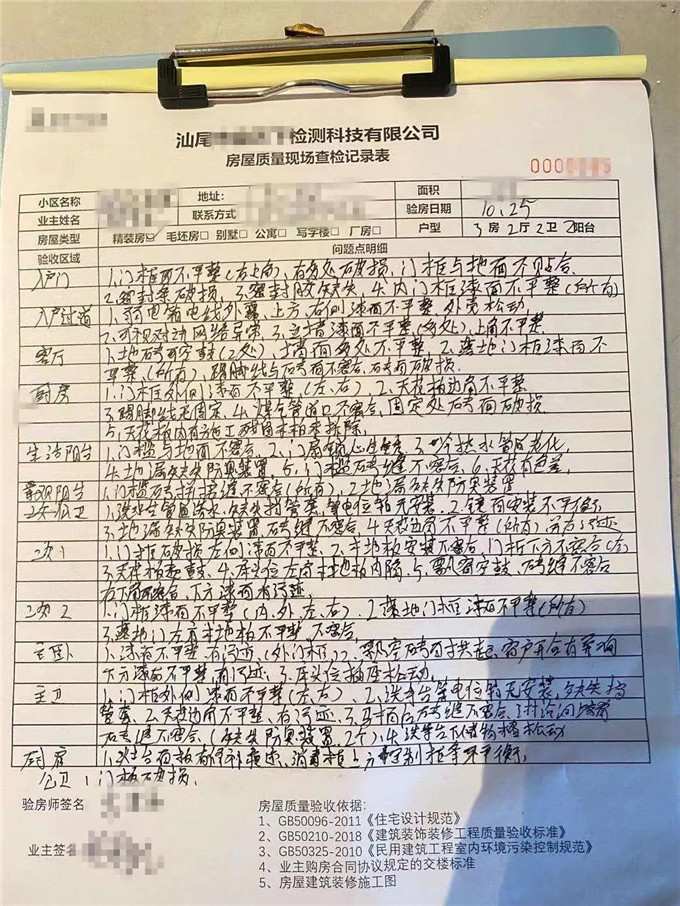 汕尾 检测科技有限公司
房屋质量现场查检记录表
0000 5
小区名称 地址: 面积
业主姓名 联系方式 验房日期 10.25
房屋类型 精装房☑ 毛坯房□ 别墅□ 公寓□ 写字楼□ 厂房□ 户型 3房2厅2卫2阳台
验收区域 问题点明细
入户门 1.门框面不平整(左上角),有多处破损,门框与地面不贴合.
2.密封条破损,3.密封胶缺失,4.内门框漆面不平整(所有)
入户过道 1.弱电箱电线外露,上方、右侧漆面不平整,外壳松动,
2.可视对讲网络异常,3.墙漆面不平整(多处),上角不平整.
客厅 1.地砖空鼓(2处),墙面多处不平整.2.落地门框漆面不
平整(所有),踢脚线与砖面不密合,砖面破损.
厨房 1.门框外侧漆面不平整(左、右).2.天花板边角不平整
3.踢脚线无固定.4.煤气管道口不密合,固定处砖面破损.
5.天花板内有施工残留未拆除.
生活阳台 1.门槛与地面不密合.2.门扇 3. 热水管 老化.
4.地漏缺失防臭装置.5.门槛砖缝不密合.6.天花有色差.
景观阳台 1.门槛砖拼接缝不密合(所有),2.地漏缺失防臭装置
公卫 1.洗手台管道 水,缺失 管套,等电位箱无安装.2.镜面安装不平衡.
3.地漏缺失防臭装置,砖缝不密合.4.天花边角不平整(所有)
次1 1.门框破损,左侧漆面不平整.2.木地板安装不密合,门框下方不密合(左)
3. 4.床头位左角木地板内陷.5.飘窗空鼓,砖缝不密合
右下角不密合,下方漆面有污迹.
次2 1.门框漆面不平整(内、外左、右).2.落地门框漆面不平整(所有)
3.落地门左角木地板不平整,不密合.
主卧 1.漆面不平整,有污迹(外门框).2.飘窗砖 拱起,窗户开合有异响
下方漆面不平整,有污迹.3.床头位插座松动.
主卫 1.门框外侧漆面不平整(左、右).2.洗手台等电位箱无安装,缺失挡
管套.2.天花边角不平整,有污迹.3.马桶后砖缝不密合,淋浴间
砖缝不密合.(缺失防臭装置2个).4.洗手台下储物柜松动
厨房 1.灶台面板有修补痕迹,消毒柜上方 柜 不平衡.
公卫:门板破损.
验房师签名 房屋质量验收依据:
1、GB50096-2011《住宅设计规范》
2、GB50210-2018《建筑装饰装修工程质量验收标准》
业主签名 3、GB50325-2010《民用建筑工程室内环境污染控制规范》
4、业主购房合同协议规定的交楼标准
5、房屋建筑装修施工图